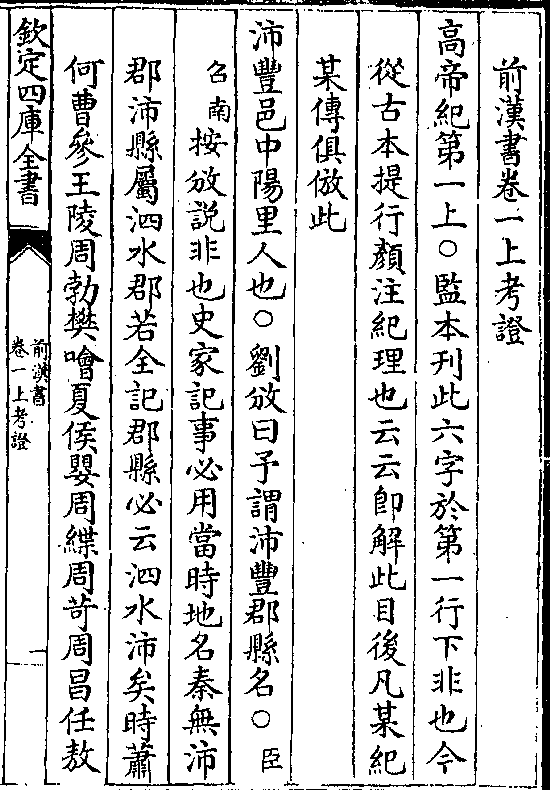 前漢書卷一上考證
高帝紀第一上○監本刊此六字於第一行下非也今
從古本提行顏注紀理也云云即解此目後凡某紀
某傳俱倣此
沛豐邑中陽里人也○劉攽曰予謂沛豐郡縣名○臣
召南按攽説非也史家記事必用當時地名秦無沛
郡沛縣屬泗水郡若全記郡縣必云泗水沛矣時蕭
何曹參王陵周勃樊噲夏侯嬰周緤周苛周昌任敖
欽定四庫全書
前漢書
卷一上考證
一